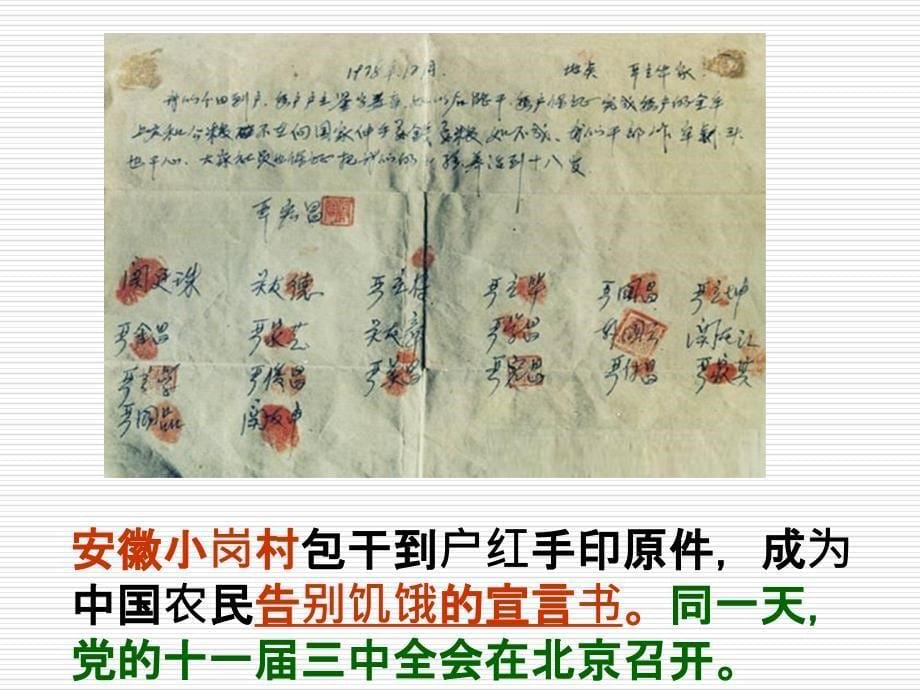 1978年12月 地点 严立华家
我们分田到户,每户户主签字盖章,如以后能干,每户保证完成每户的全年
上交和公粮 不在向国家伸手要钱要粮 如不成,我们干部作 牢 头
也干心,大家社员也保证把我们的小孩养活到十八岁
严宏昌
关廷珠 关友德 严立符 严立华 严国昌 严立坤
严金昌 严家芝 关友章 严学昌 韩国云 关友江
严立学 严俊昌 严美昌 严宏昌 严付昌 严家其
严国品 关友申
安徽小岗村包干到户红手印原件,成为
中国农民告别饥饿的宣言书。同一天,
党的十一届三中全会在北京召开。